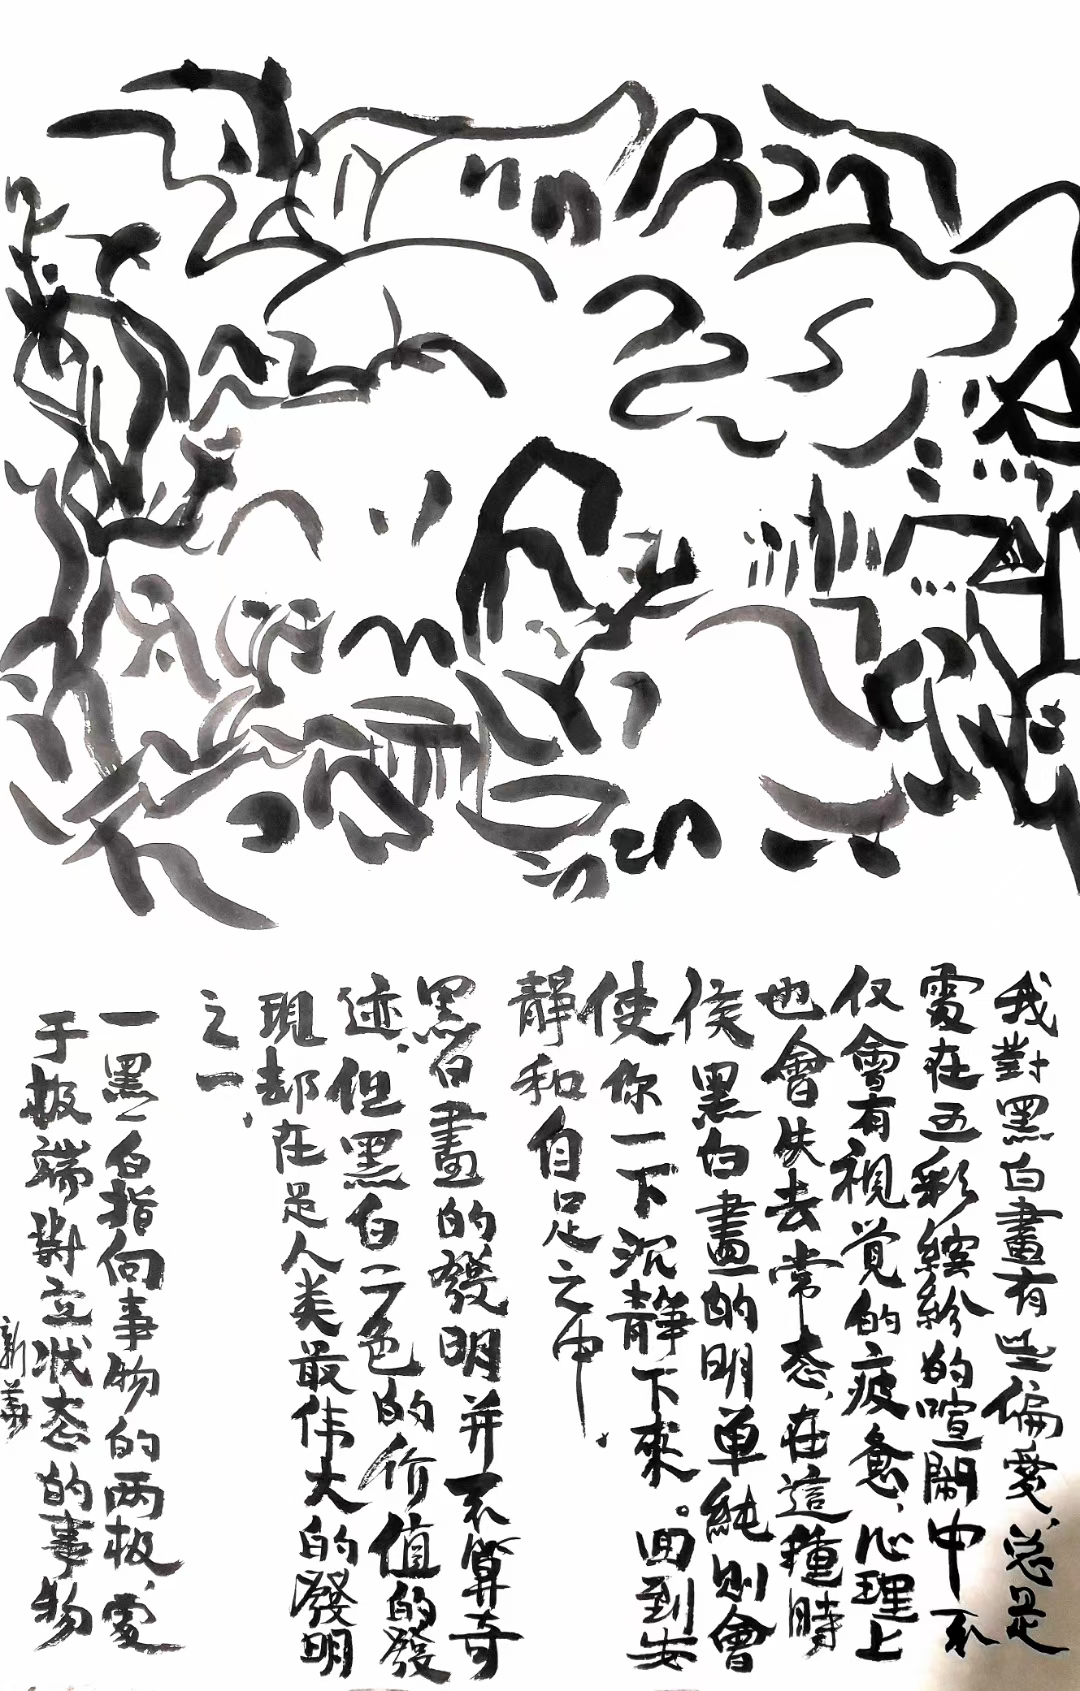 我對黑白畫有些偏愛、总是
處在五彩繽紛的喧鬧中不
仅會有視觉的疲惫、心理上
也會失去常态、在這種時
侯黑白畫的明单純则會
使你一下沉静下來。回到安
靜和自足之中、
黑白畫的發明并不算奇
迹、但黑白二色的价值的發
現却在是人类最伟大的發明
之一、
一黑一白指向事物的两极、處
于极端對立状态的事物
新義